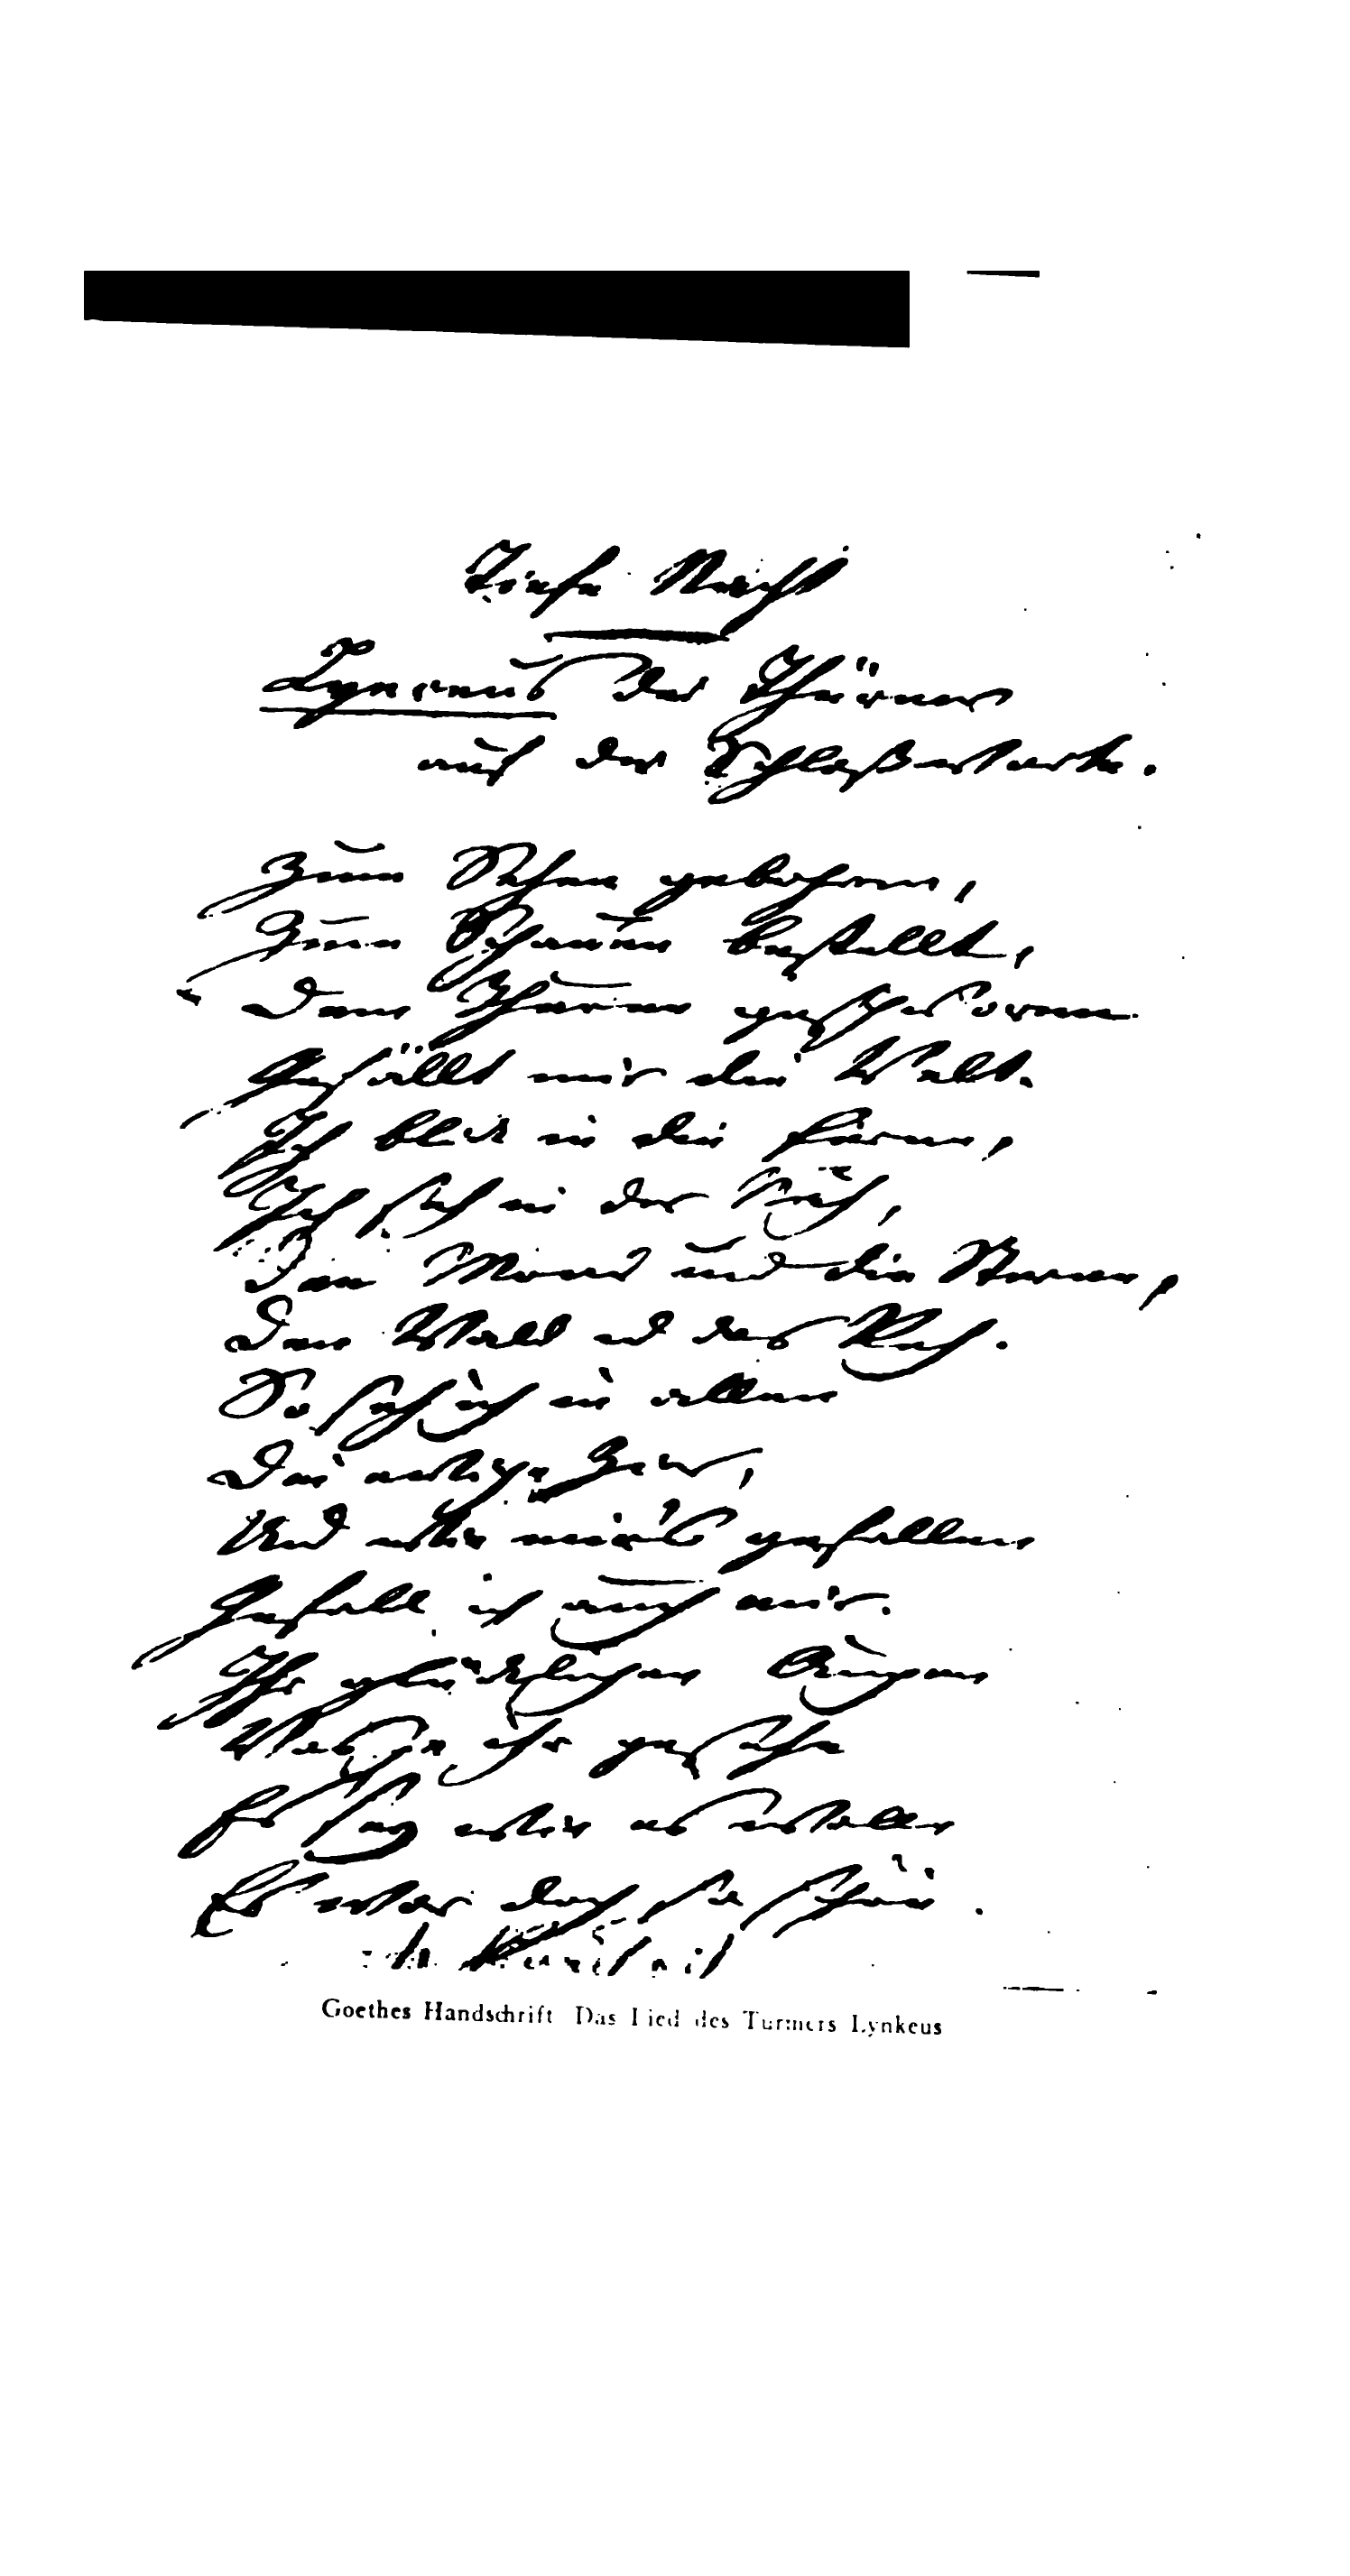 Tiefe Nacht
Lynceus der Thürner
auf der Schloßwarte.
Zum Sehen gebohren,
Zum Schauen bestellt,
Dem Thurme geschworen
Gefällt mir die Welt.
Ich blick in die Ferne,
Ich seh in der Näh,
Den Mond und die Sterne,
Den Wald u d das Reh.
So seh ich in allen
Die ewige Zier,
Und wie mir's gefallen
Gefall ich auch mir.
Ihr glücklichen Augen
Was je ihr gesehn
Es sey wie es wolle
Es war doch so schön.
Goethes Handschrift Das Lied des Türmers Lynkeus